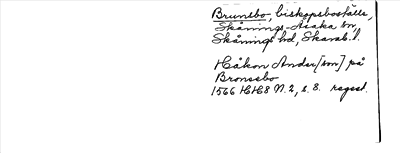 Brunsbo, biskopsboställe,
Skånings-Åsaka sn,
Skånings hd, Skarab. l.
Håkon Anders[son] på
Bronssbo
1566 HH8 N. 2, s. 8. regest.